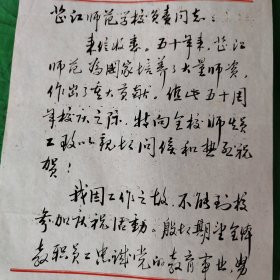 芷江师范学校负责同志：
来信收悉。五十年来，芷江
师范为国家培养了大量师资，
作出了重大贡献，值此五十周
年校庆之际，特向全校师生员
工致以亲切问候和热烈祝
贺！
我因工作之故，不能到校
参加庆祝活动。殷切期望全体
教职员工忠诚党的教育事业，努